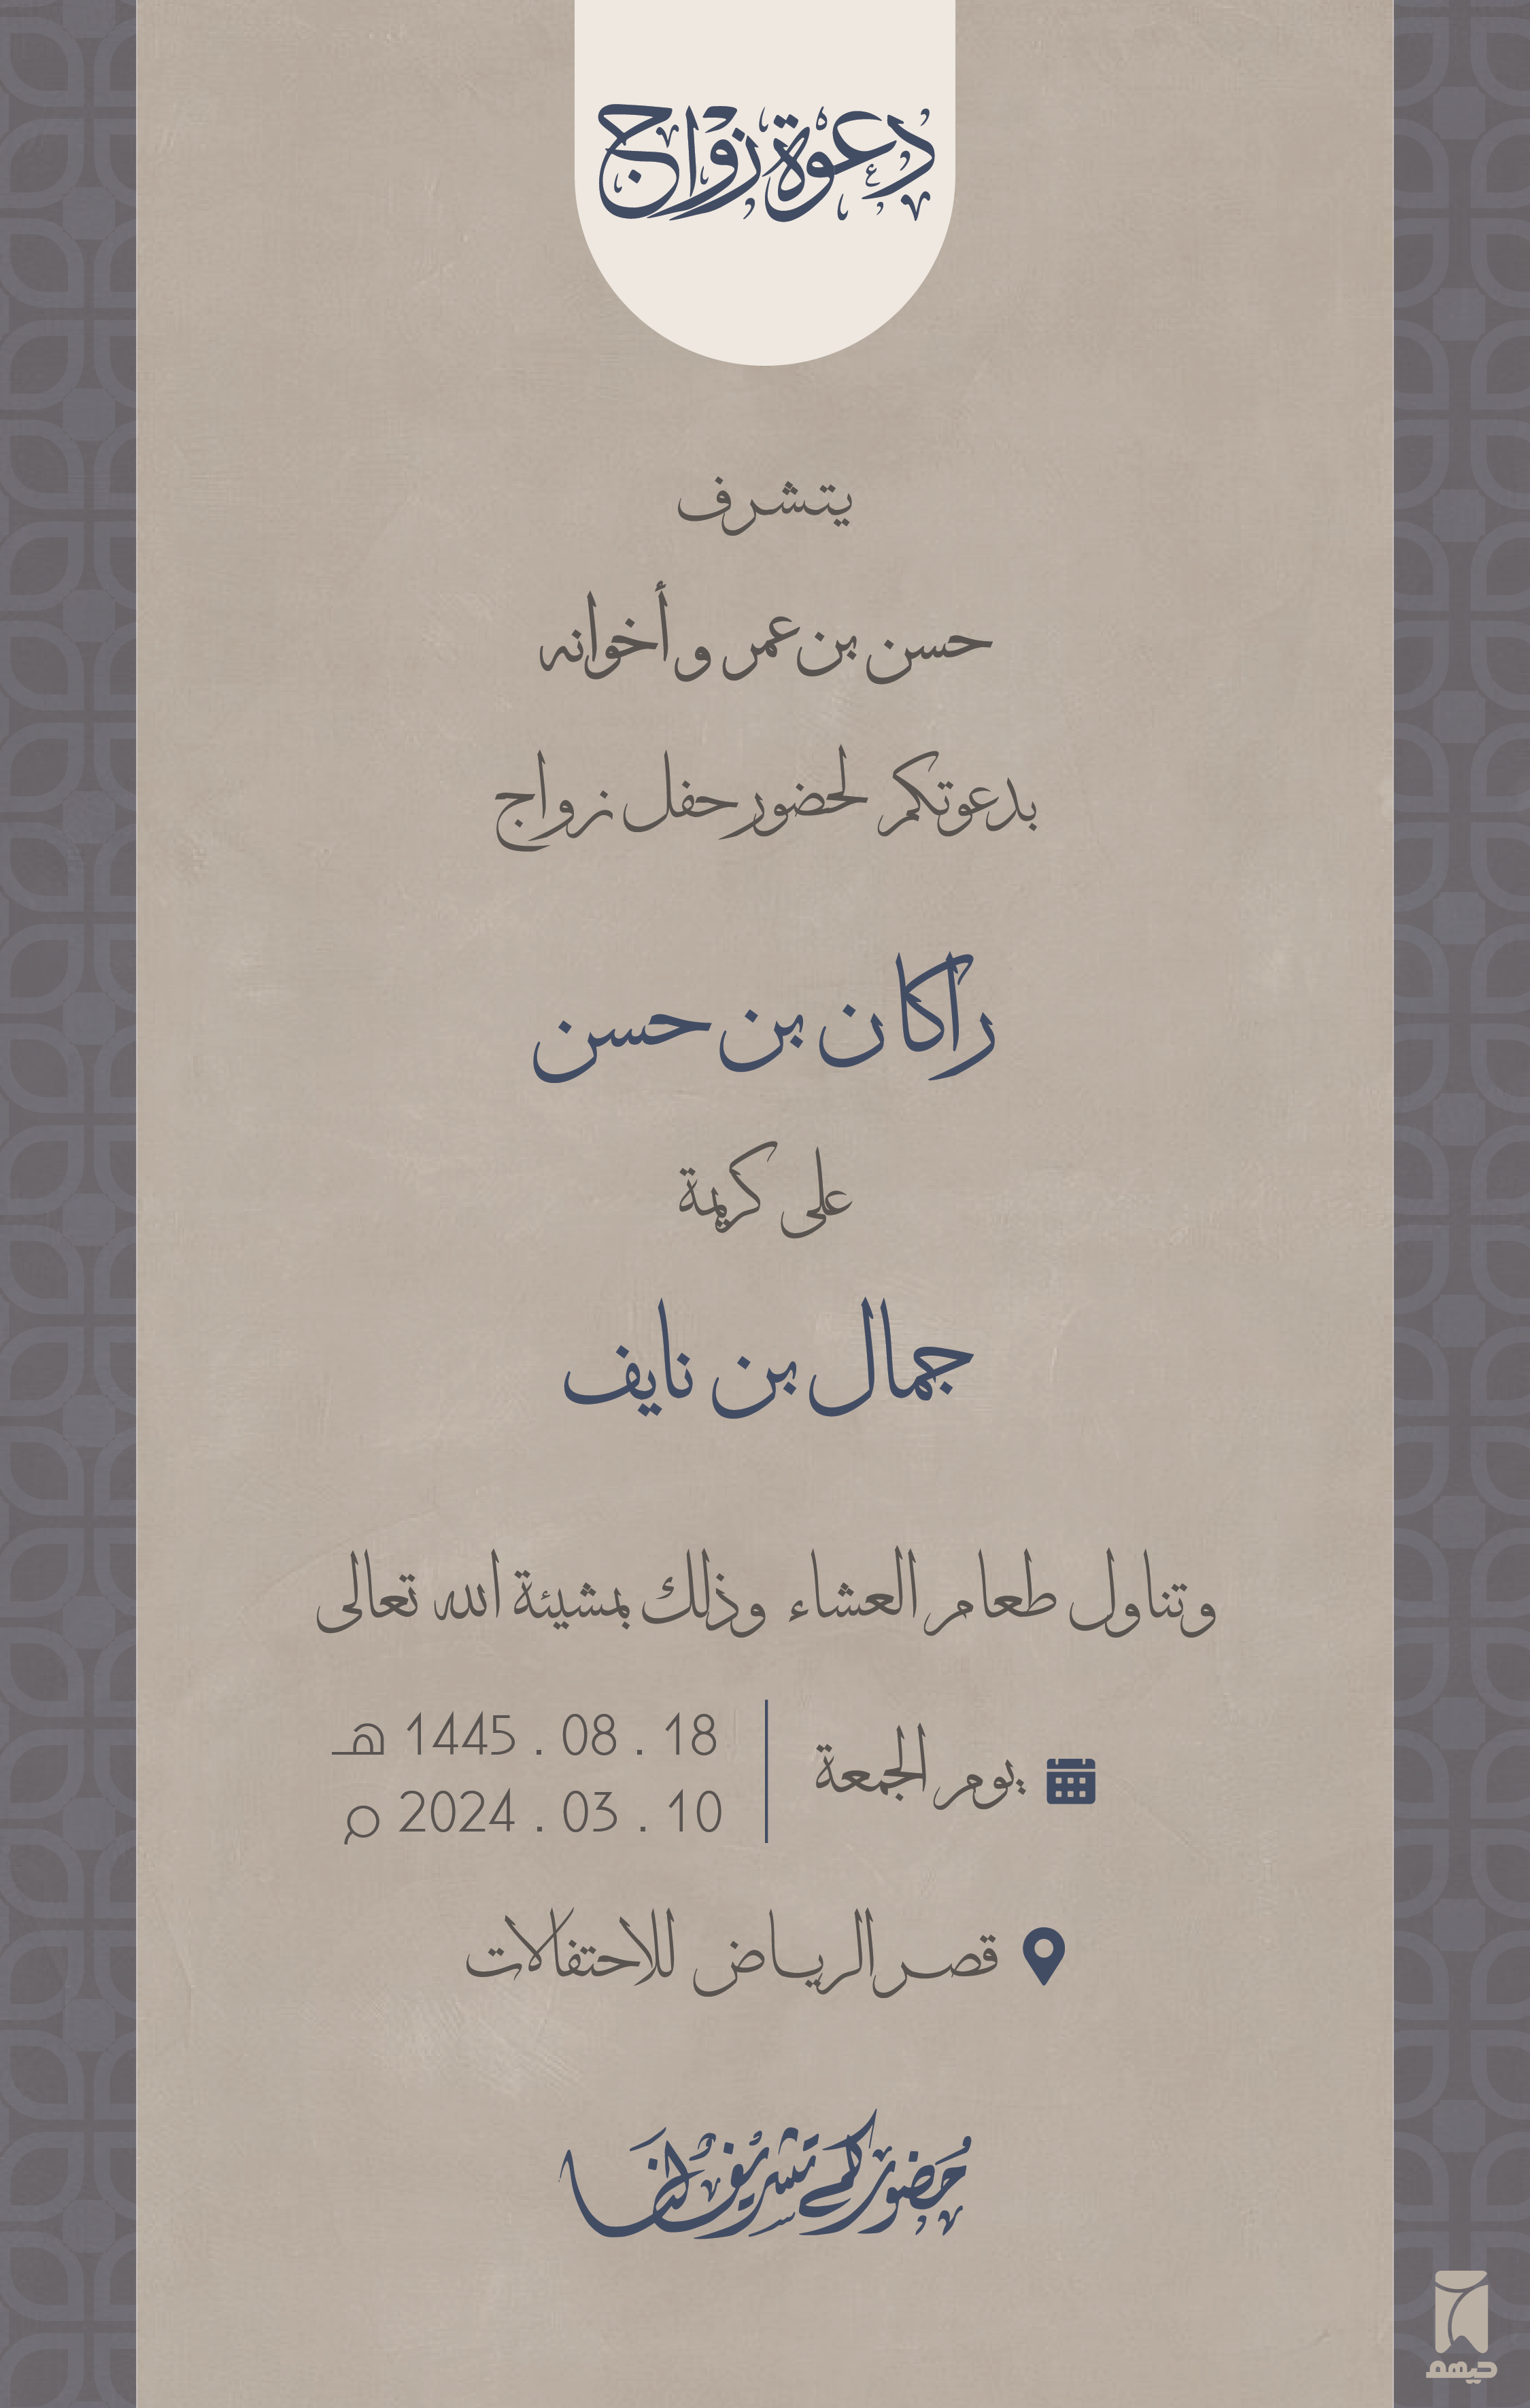 دعوة زواج
يتشرف
حسن بن عمر و أخوانه
بدعوتكم لحضور حفل زواج
راكان بن حسن
على كريمة
جمال بن نايف
وتناول طعام العشاء وذلك بمشيئة الله تعالى
يوم الجمعة
18 . 08 . 1445 هـ
10 . 03 . 2024 م
قصر الرياض للاحتفالات
حضوركم تشريف لنا
حيهم